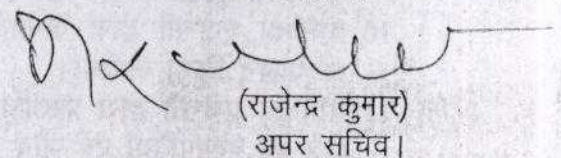 (राजेन्द्र कुमार)
अपर सचिव।